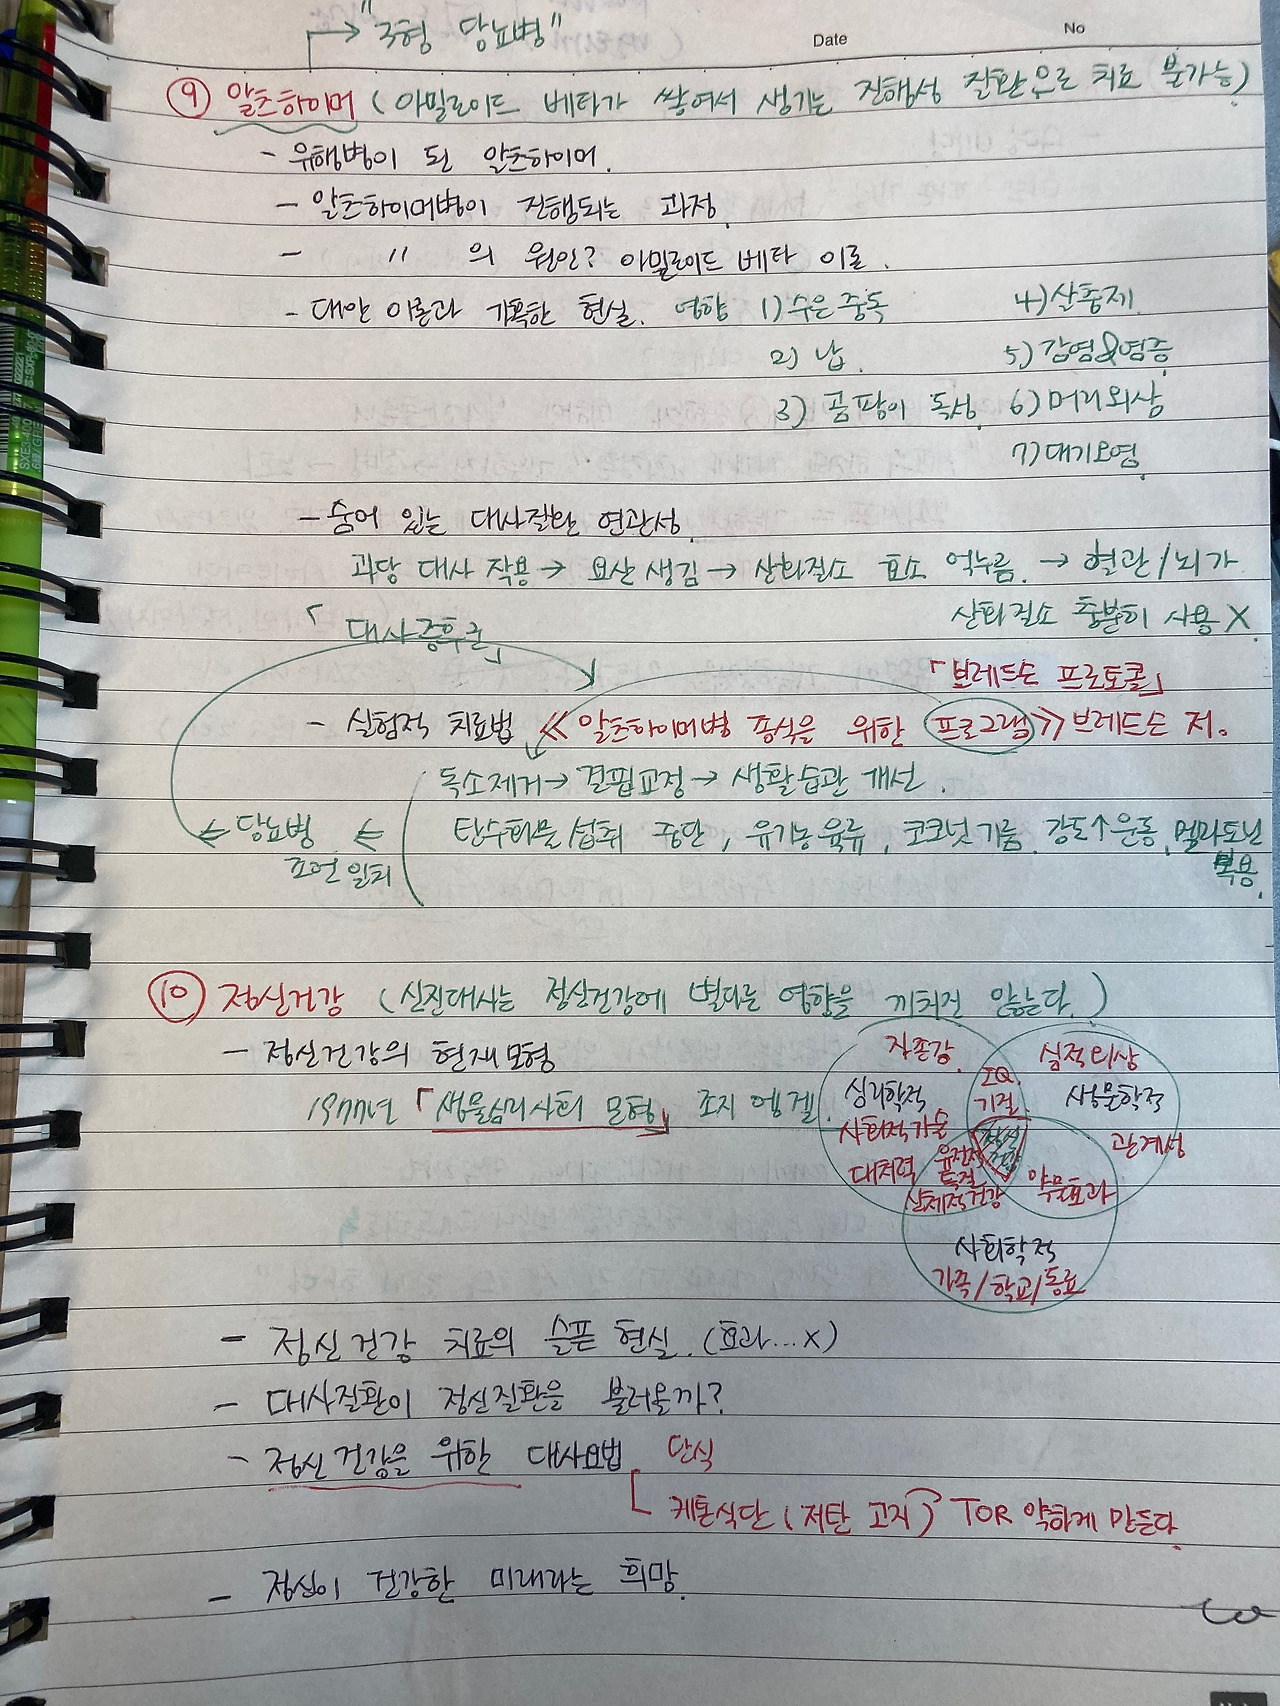 "3형 당뇨병"
Date
No
⑨ 알츠하이머 (아밀로이드 베타가 쌓여서 생기는 진행성 질환으로 치료 불가능)
- 유행병이 된 알츠하이머.
- 알츠하이머병이 진행되는 과정
- 〃 의 원인? 아밀로이드 베타 이론.
- 대안 이론과 가혹한 현실. 영향 1) 수은중독 4) 살충제
2) 납 5) 감염&염증
3) 곰팡이 독성 6) 머리외상
7) 대기오염
- 숨어 있는 대사질환 연관성
과당 대사 작용 → 요산 생김 → 산화질소 효소 억누름. → 혈관/뇌가
산화질소 충분히 사용 X
「대사증후군」
「브레드슨 프로토콜」
- 실험적 치료법 《알츠하이머병 종식을 위한 프로그램》 브레드슨 저.
독소제거 → 결핍교정 → 생활습관 개선.
← 당뇨병 ← 탄수화물 섭취 중단, 유기농육류, 코코넛 기름, 강도↑운동, 멜라토닌
조언 일치 복용.
⑩ 정신건강 (신진대사는 정신건강에 별다른 영향을 끼치진 않는다.)
- 정신건강의 현재모형
1977년 「생물심리사회 모형」 조지 엥겔.
자존감
심리학적
사회적기술
대처력
IQ
기질
심적외상
관계성
정신
건강
유전적
신체적건강
약물효과
사회학적
가족/학교/동료
- 정신건강 치료의 슬픈 현실. (효과...X)
- 대사질환이 정신질환을 불러올까?
- 정신건강을 위한 대사요법 단식
케톤식단 (저탄 고지) TOR 약하게 만든다.
- 정신이 건강한 미래라는 희망.